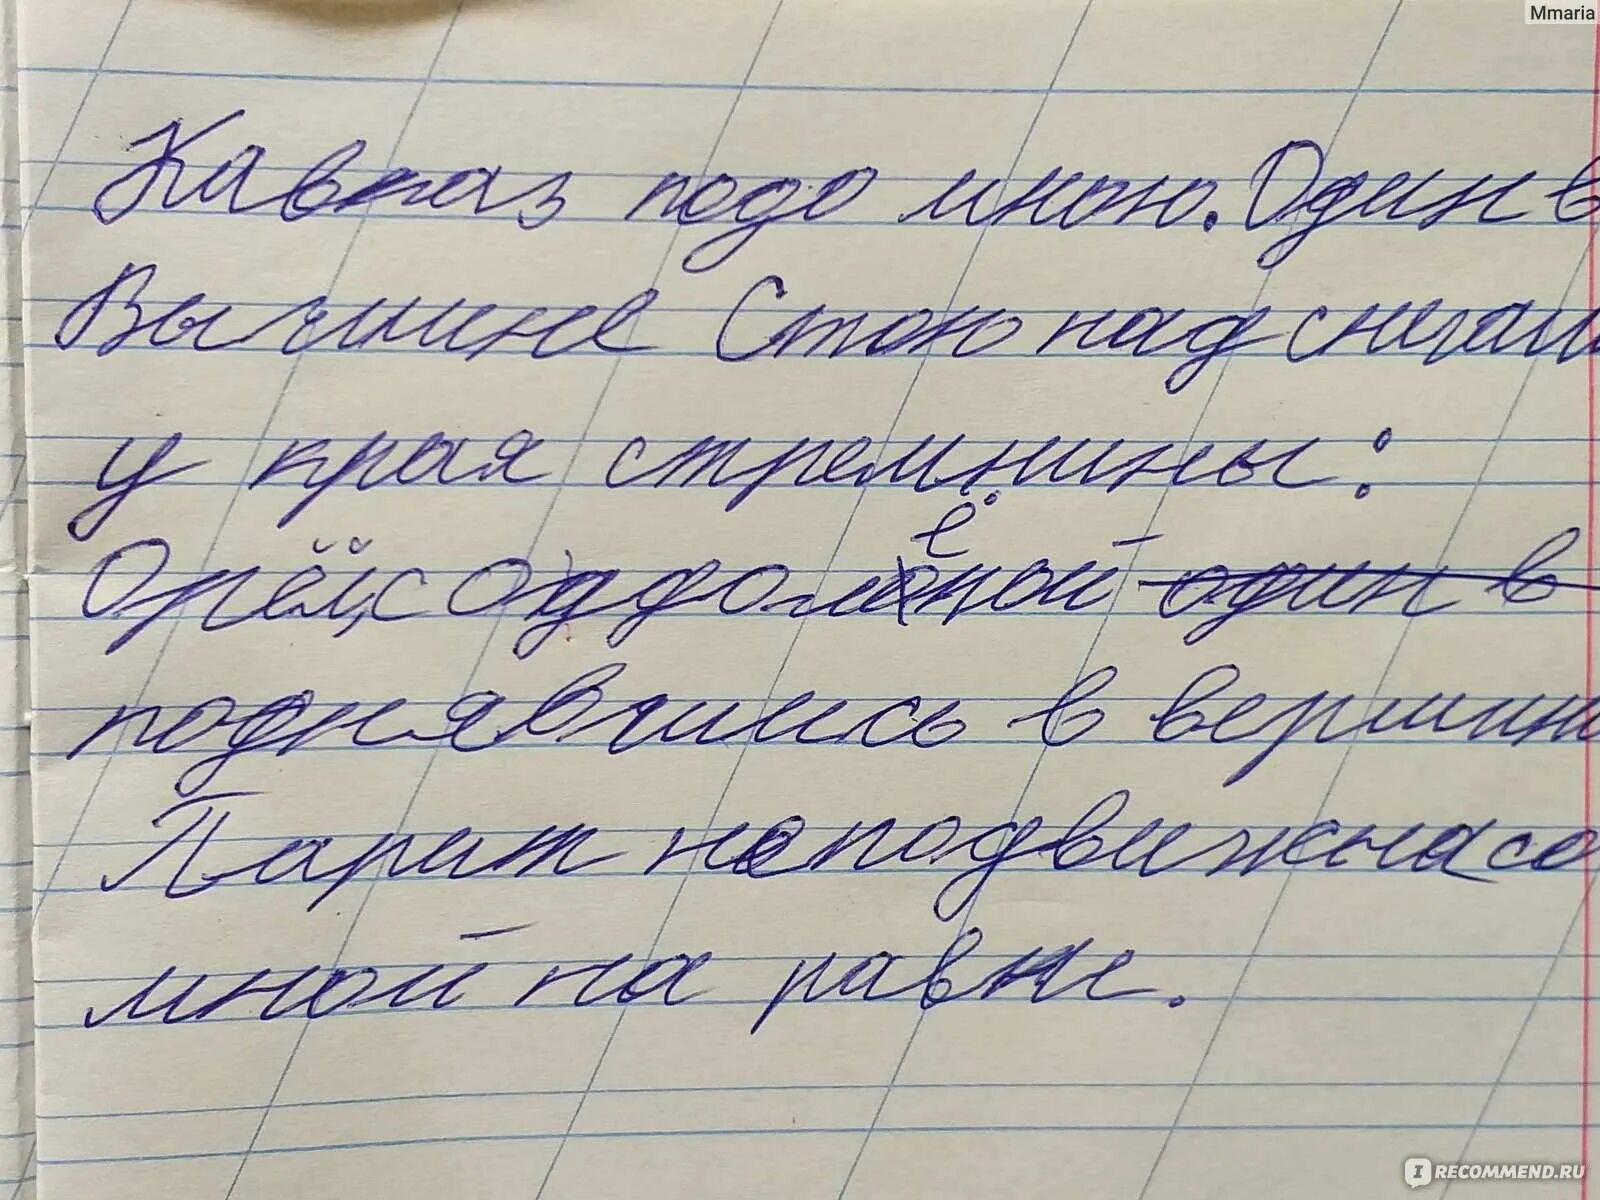 Mmaria
Кавказ подо мною. Один в
Вышине Стою над снегами
у края стремнины:
Орёл, с Оддолёной один в
поднявшись в вершин
Парит неподвижна со
мной на равне.
IRECOMMEND.RU